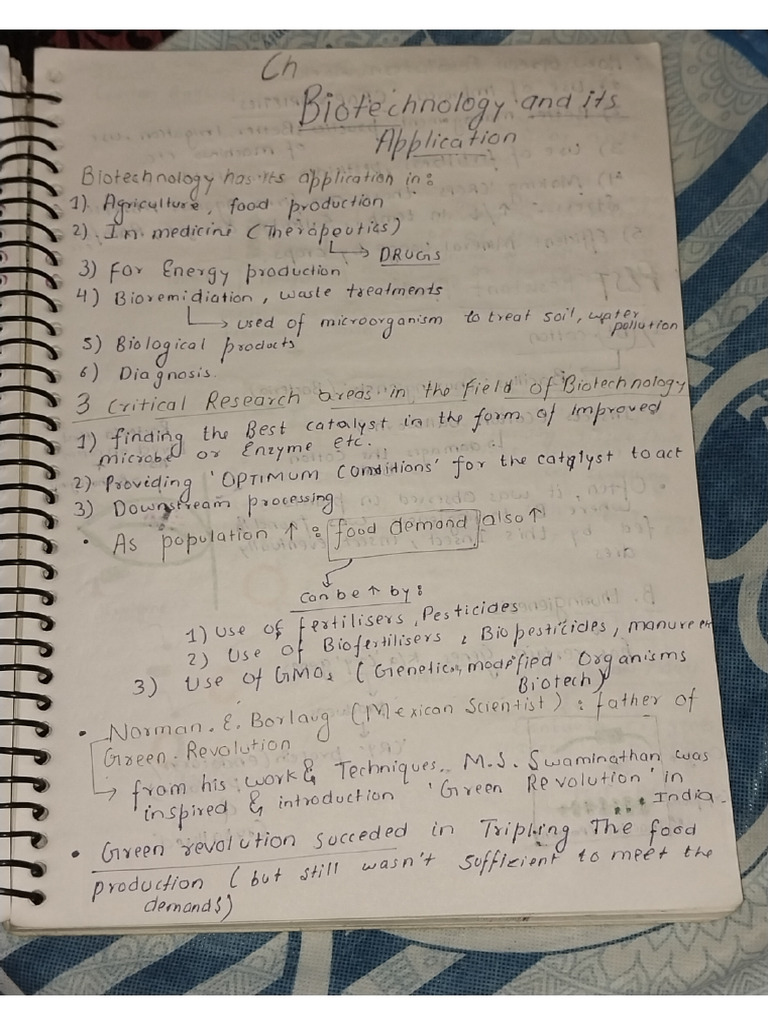 Ch
Biotechnology and its
Application
Biotechnology has its application in:
1) Agriculture, food production
2) In medicine (Therapeutics)
↳ DRUGS
3) For Energy production
4) Bioremidiation, waste treatments
↳ used of microorganism to treat soil, water
pollution
5) Biological products
6) Diagnosis.
3 Critical Research areas in the field of Biotechnology
1) finding the Best catalyst in the form of Improved
microbe or Enzyme etc.
2) Providing 'OPTIMUM Conditions' for the catalyst to act
3) Downstream processing
• As population ↑ : food demand also ↑
can be ↑ by:
1) Use of fertilisers, Pesticides
2) Use of Biofertilisers & Biopesticides, manure
3) Use of GMOs (Genetic modified Organisms
Biotech)
• Norman. E. Borlaug (Mexican Scientist) : father of
Green Revolution
↳ from his work & Techniques, M.S. Swaminathan was
inspired & introduction 'Green Revolution' in
India.
• Green revolution succeded in Tripling The food
production (but still wasn't sufficient to meet the
demands)